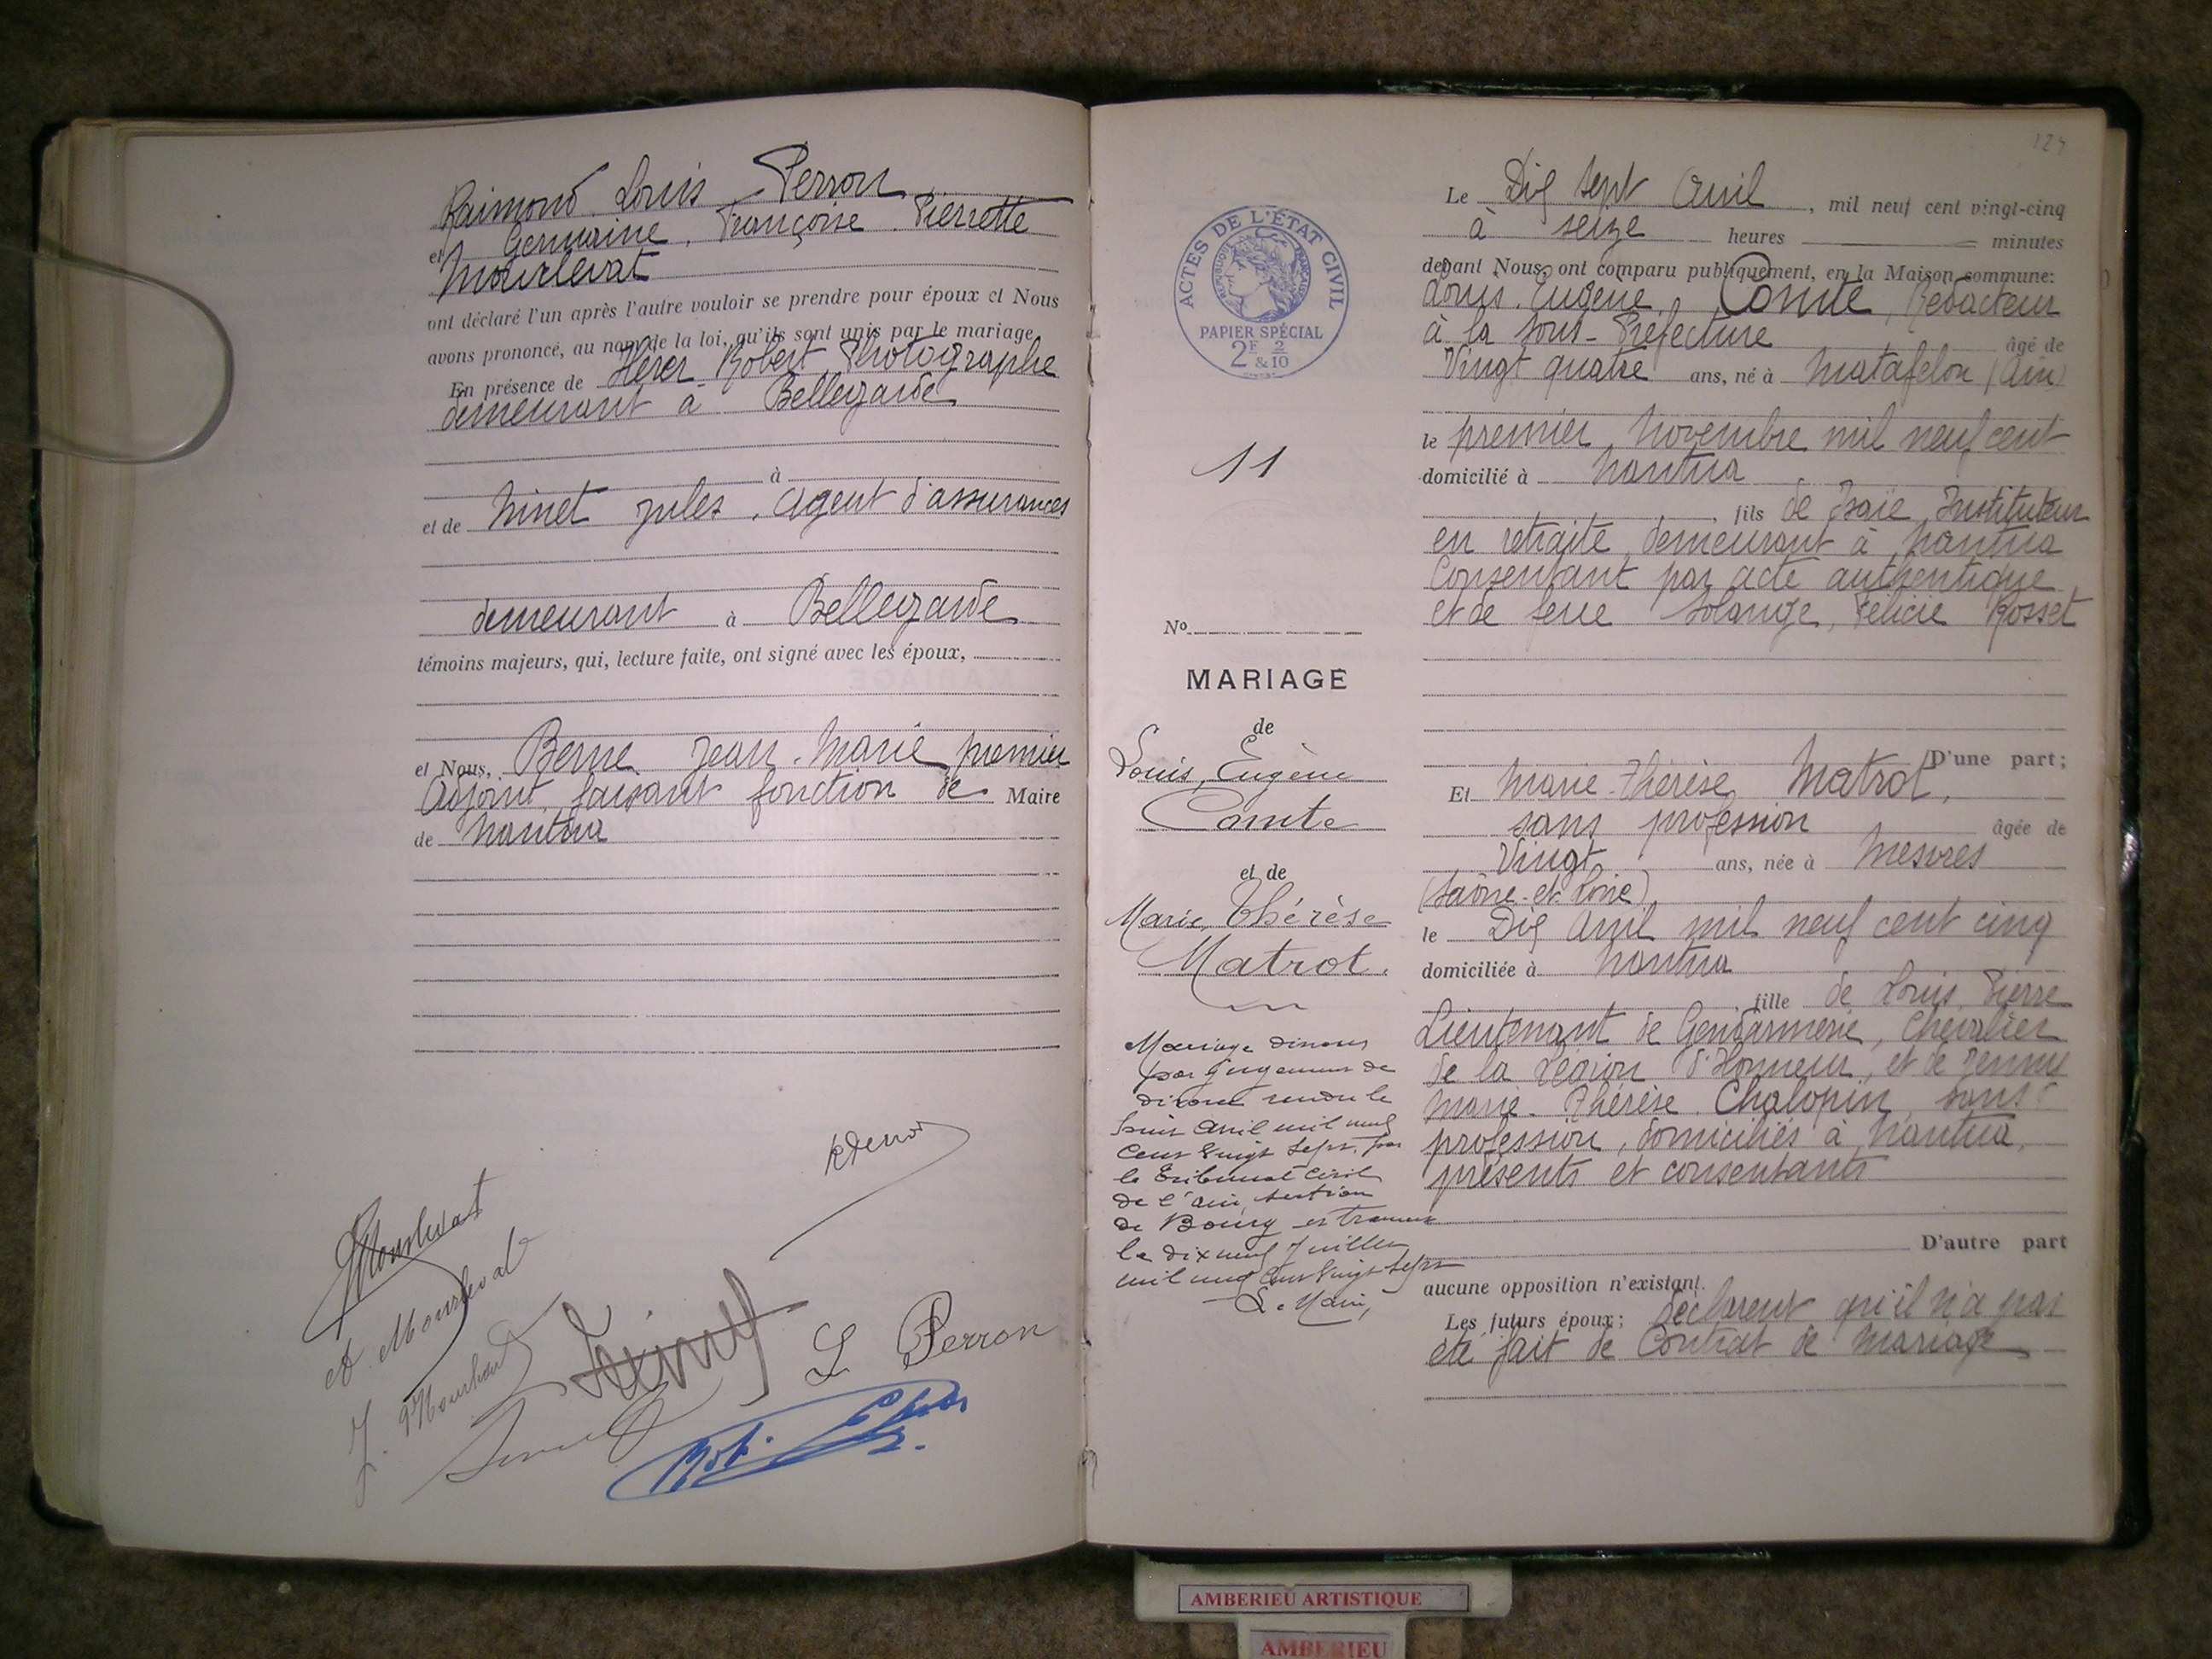 Raimond Louis Perron
et Germaine, Françoise Pierrette
Mourlevat
ont déclaré l'un après l'autre vouloir se prendre pour époux et Nous
avons prononcé, au nom de la loi, qu'ils sont unis par le mariage
En présence de Robert Photographe
demeurant à Bellegarde
à
et de Ninet Jules, Agent d'assurances
demeurant à Bellegarde
témoins majeurs, qui, lecture faite, ont signé avec les époux,
et Nous, Berne Jean-Marie premier
Adjoint faisant fonction de Maire
de Nantua
Mourlevat
Mourlevat
L Perron
124
ACTES DE L'ÉTAT CIVIL
REPUBLIQUE FRANÇAISE
PAPIER SPÉCIAL
2F & 2/10
11
No
MARIAGE
de
Louis, Eugène
Comte
et de
Marie Thérèse
Matrot.
Mariage dissous
par jugement de
divorce rendu le
huit avril mil neuf
cent vingt sept par
le Tribunal Civil
de l'Ain, section
de Bourg
le dix neuf Juillet
mil neuf cent vingt sept
Le Maire,
Le Dix sept Avril, mil neuf cent vingt-cinq
à seize heures minutes
devant Nous, ont comparu publiquement, en la Maison commune:
Louis Eugène Comte, Rédacteur
à la Sous-Préfecture âgé de
Vingt quatre ans, né à Matafelon (Ain)
le premier Novembre mil neuf cent
domicilié à Nantua
fils de Isaïe Instituteur
en retraite, demeurant à Nantua
Consentant par acte authentique
et de feue Solange, Félicie Rosset
D'une part;
Et Marie-Thérèse Matrot,
sans profession âgée de
Vingt ans, née à Mesvres
(Saône-et-Loire)
le Dix Avril mil neuf cent cinq
domiciliée à Nantua
fille de Louis Pierre
Lieutenant de Gendarmerie, Chevalier
de la Légion d'Honneur, et de Jenny
Marie-Thérèse Chalopin, sans
profession, domiciliés à Nantua,
présents et consentants
D'autre part
aucune opposition n'existant.
Les futurs époux; déclarent qu'il n'a pas
été fait de Contrat de Mariage
AMBERIEU ARTISTIQUE
AMBERIEU